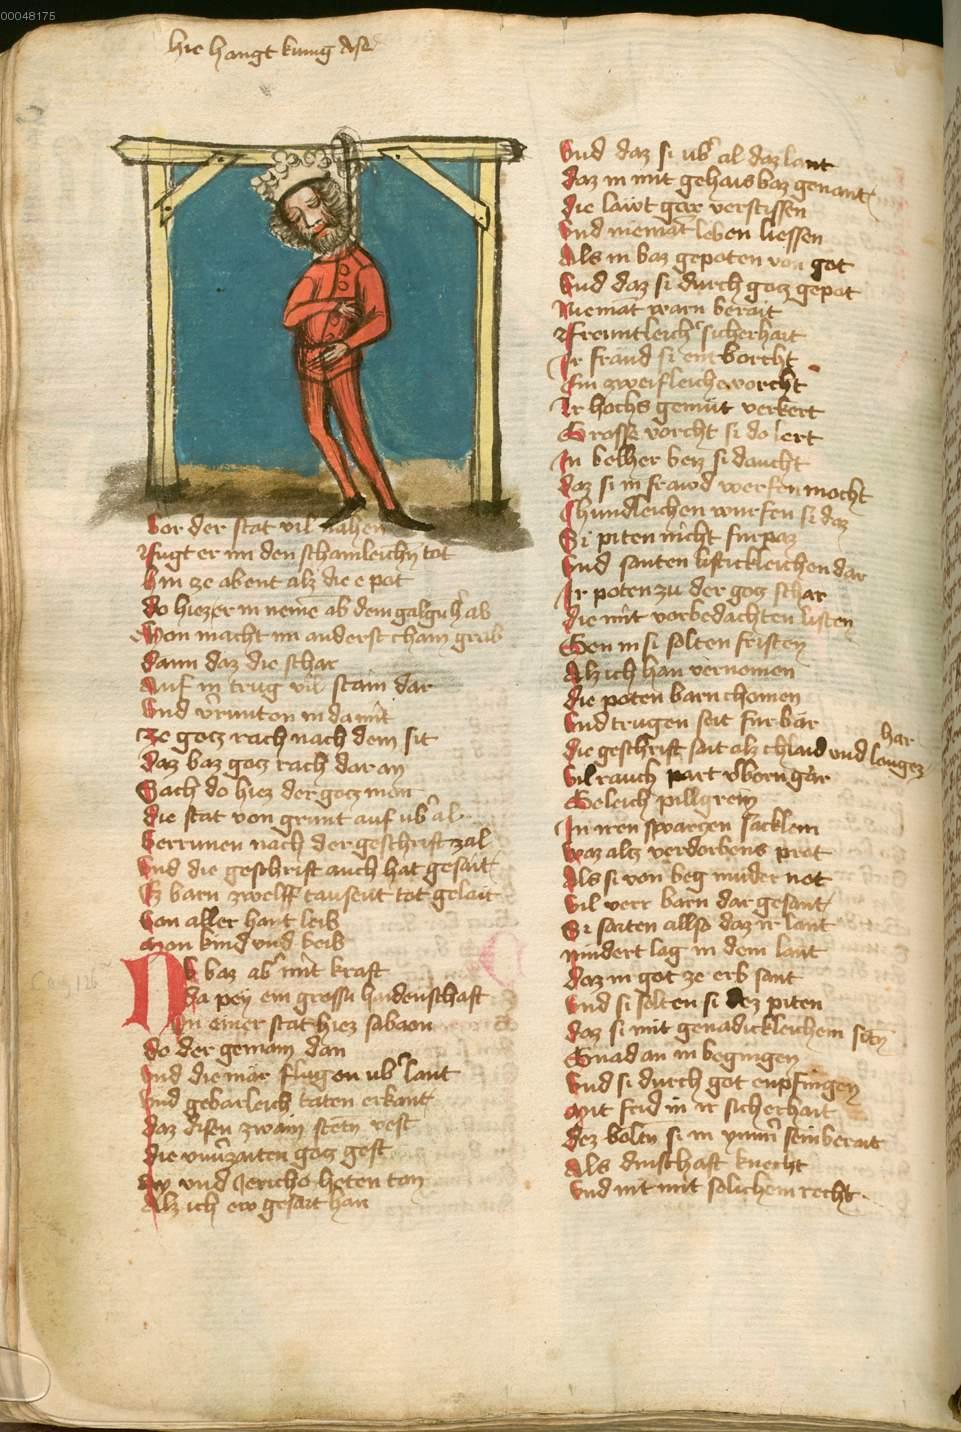 00048175
hie hangt kunig Asa
Vor der stat vil nahen
Fugt er im den schamleichn tot
Hin ze abent alz die e pot
do hiez er in neme ab dem galgn h'ab
Won macht im anderst cham grab
dann daz die schar
Auf in trug vil stain dar
Vnd v'runton in da mit
Ze gotz rach nach dem sit
daz baz gotz rach dar an
Nach do hiez der gotz man
die stat von grunt auf ub' al
Verrinnen nach der geschrift zal
Vnd die geschrift auch hat gesait
Ez barn zwelff tausent tot gelait
Von aller hant leib
Man kind vnd beib
Nv baz ab' mit kraft
da pey ein grossu haidenschaft
In einer stat hiez sabaon
do der gemain dan
Ind die mär flugen ub' laut
Vnd gebarleich taten erkant
daz disen zwain stetn vest
die vnv'zaiten gotz gest
Ay vnd Jericho heten tan
Alz ich ew gesait han
Vnd daz si ub' al daz lant
daz in mit gehais baz genant
die läwt gar verstissen
Vnd niemat leben liessen
Als in baz gepoten von got
Vnd daz si durch gotz gepot
Niemat warn berait
Freuntleich' sicherhait
Ir fräud si entborcht
Ein zweifleiche vorcht
Ir hochs gemüt verkert
Grosse vorcht si do lert
In belher beiz si daucht
daz si in frawd werfen mocht
Chundleichen wurfen si daz
Si piten nicht furpaz
Vnd santen listickleichen dar
Ir poten zu der gotz schar
die mit vorbedachten listen
Gen in si solten fristen
Alz ich han vernomen
die poten barn chomen
Vnd trugen seit fur bar
die geschrift sait alz chlaid vnd langez
har
Vil rauch part v'born gar
Geleich pillgrein
In iren swarzen sacklein
Waz altz verdorbens prot
Als si von beg müder not
Vil verr barn dar gesant
Si saiten allso daz ir lant
nindert lag in dem lant
daz in got ze erb sant
Vnd si solten si dez piten
daz si mit genadickleichem sitn
Gnad an in begingen
Vnd si durch got enpfingen
Mit frid in ir sicherhait
dez boltn si in ymm' sein berait
Als dinschaft knecht
Vnd nit mit solichem recht